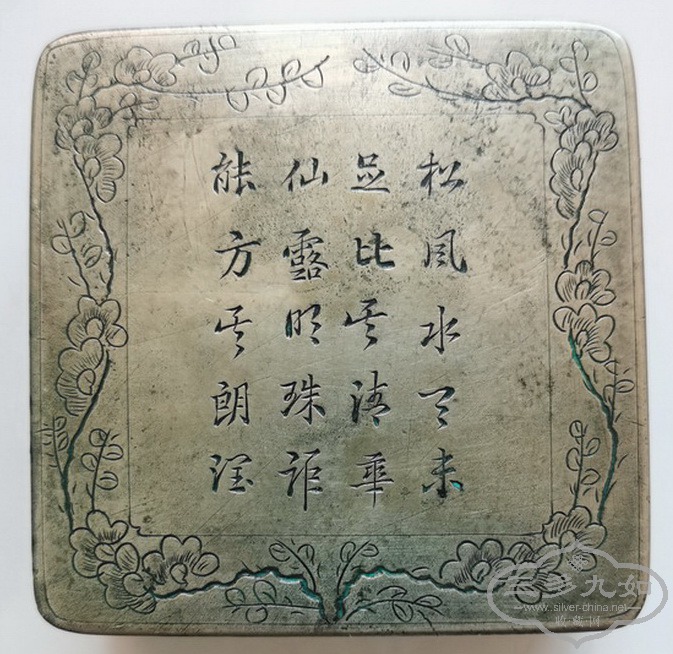 松風水月未
足比其清華
仙露明珠詎
能方其朗潤
多九如
www.silver-china.net
收藏网